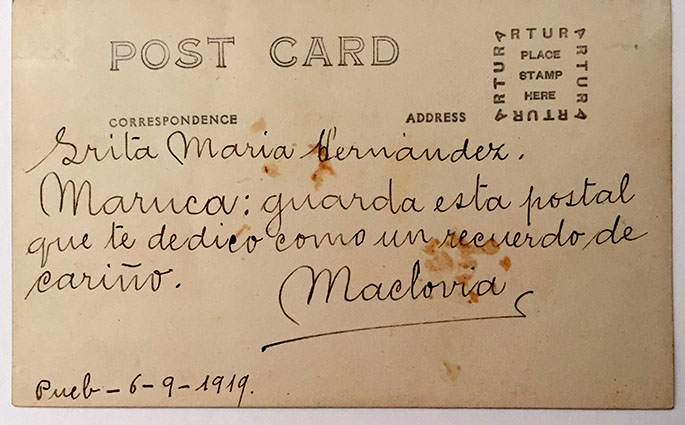 POST CARD
ARTURA
ARTURA
ARTURA
ARTURA
PLACE
STAMP
HERE
CORRESPONDENCE
ADDRESS
Srita Maria Hernández.
Maruca: guarda esta postal
que te dedico como un recuerdo de
cariño.
Maclovia
Pueb-6-9-1919.